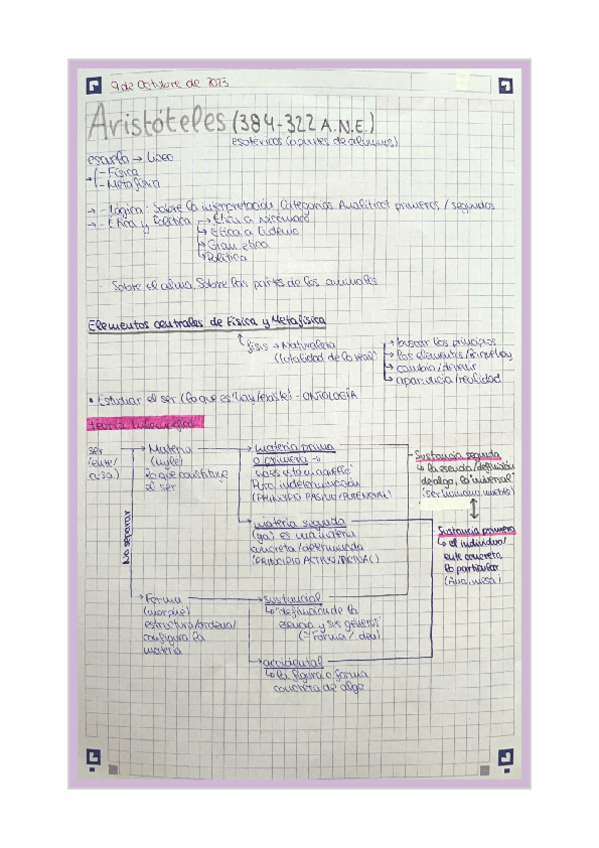 9 de octubre de 2023
Aristóteles (384-322 A.N.E.)
esotéricos (apuntes de alumnos)
escuela → Liceo
- Física
- Metafísica
→ - Lógica: Sobre la interpretación, Categorías Analíticos primeros / segundos
→ - Ética y Política → Ética a Nicómaco
→ Ética a Eudemo
→ Gran ética
→ Política
- Sobre el alma, Sobre las partes de los animales
Elementos centrales de Física y Metafísica
fisis → Naturaleza
(totalidad de lo real)
→ buscar los principios
→ los elementos
→ cambio/devenir
→ apariencia/realidad
• Estudiar el ser (lo que es/hay/existe) - ONTOLOGÍA
teoría hilemórfica
ser
(ente/
cosa)
→ Materia
(hyle)
lo que constituye
el ser
→ materia prima
o primera →
Pura indeterminación
(PRINCIPIO PASIVO/POTENCIAL)
→ materia segunda
(ya) es una materia
concreta/determinada
(PRINCIPIO ACTIVO/
No separar
→ Forma
(morphe)
estructura/ordena/
configura la
materia
→ sustancial
↳ "definición de la
esencia y sus géneros"
→ accidental
↳ la figura o forma
concreta de algo
Sustancia segunda
↳ la esencia/definición
de algo, lo "universal"
Sustancia primera
↳ el individuo/
ente concreto
lo particular
(Ana, mesa)